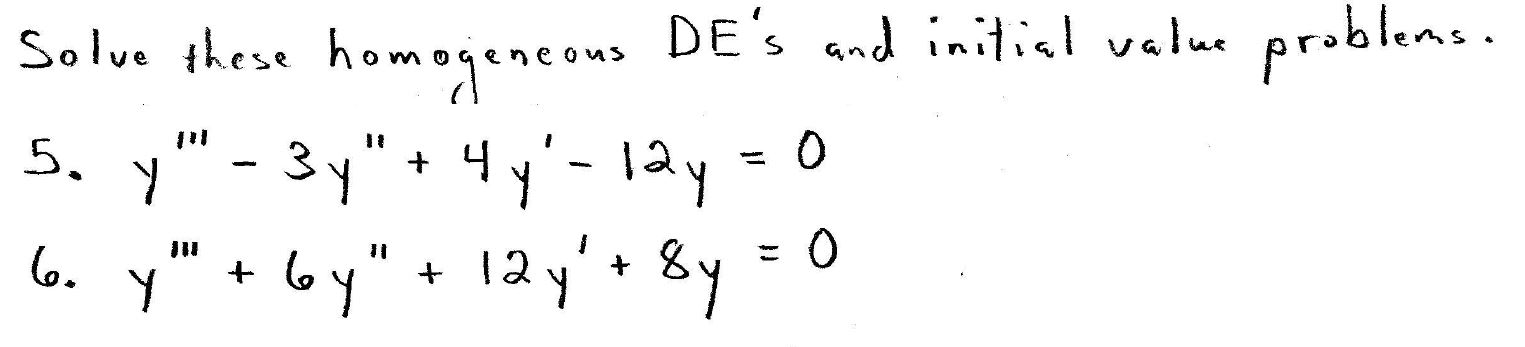 Solve these homogeneous DE's and initial value problems.
5. y''' - 3y'' + 4y' - 12y = 0
6. y''' + 6y'' + 12y' + 8y = 0